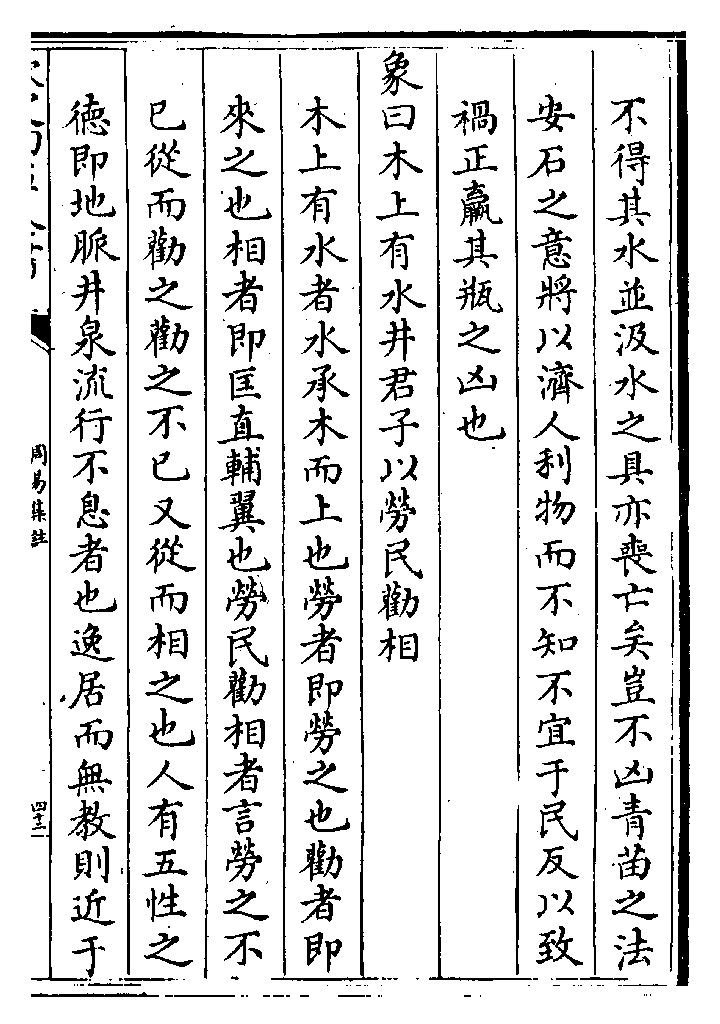 不得其水並汲水之具亦喪亡矣豈不凶青苗之法
安石之意將以濟人利物而不知不宜于民反以致
禍正羸其瓶之凶也
象曰木上有水井君子以勞民勸相
木上有水者水承木而上也勞者即勞之也勸者即
來之也相者即匡直輔翼也勞民勸相者言勞之不
已從而勸之勸之不已又從而相之也人有五性之
德即地脈井泉流行不息者也逸居而無教則近于
周易集註
四十二